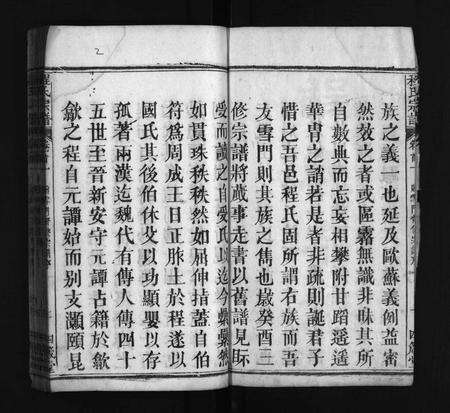 程氏宗譜
族之義一也延及歐蘇義創益密
然效之者或區霧無識非昧其所
自數典而忘妄相攀附甘蹈遥遥
華胄之誚若是者非疏則誕君子
惜之吾邑程氏固所謂右族而吾
友雪門則其族之雋也歲癸酉三
修宗譜將蕆事走書以舊譜見眎
受而讀之自受氏以迄今蟬聯然
如貫珠秩秩然如屈伸指蓋自伯
符爲周成王日正脉土於程遂以
國氏其後伯休父以功顯嬰以存
孤著兩漢迄魏代有傳人傳四十
五世至晉新安守元譚占籍於歙
歙之程自元譚始而别支灝頤昆
程氏宗譜
2